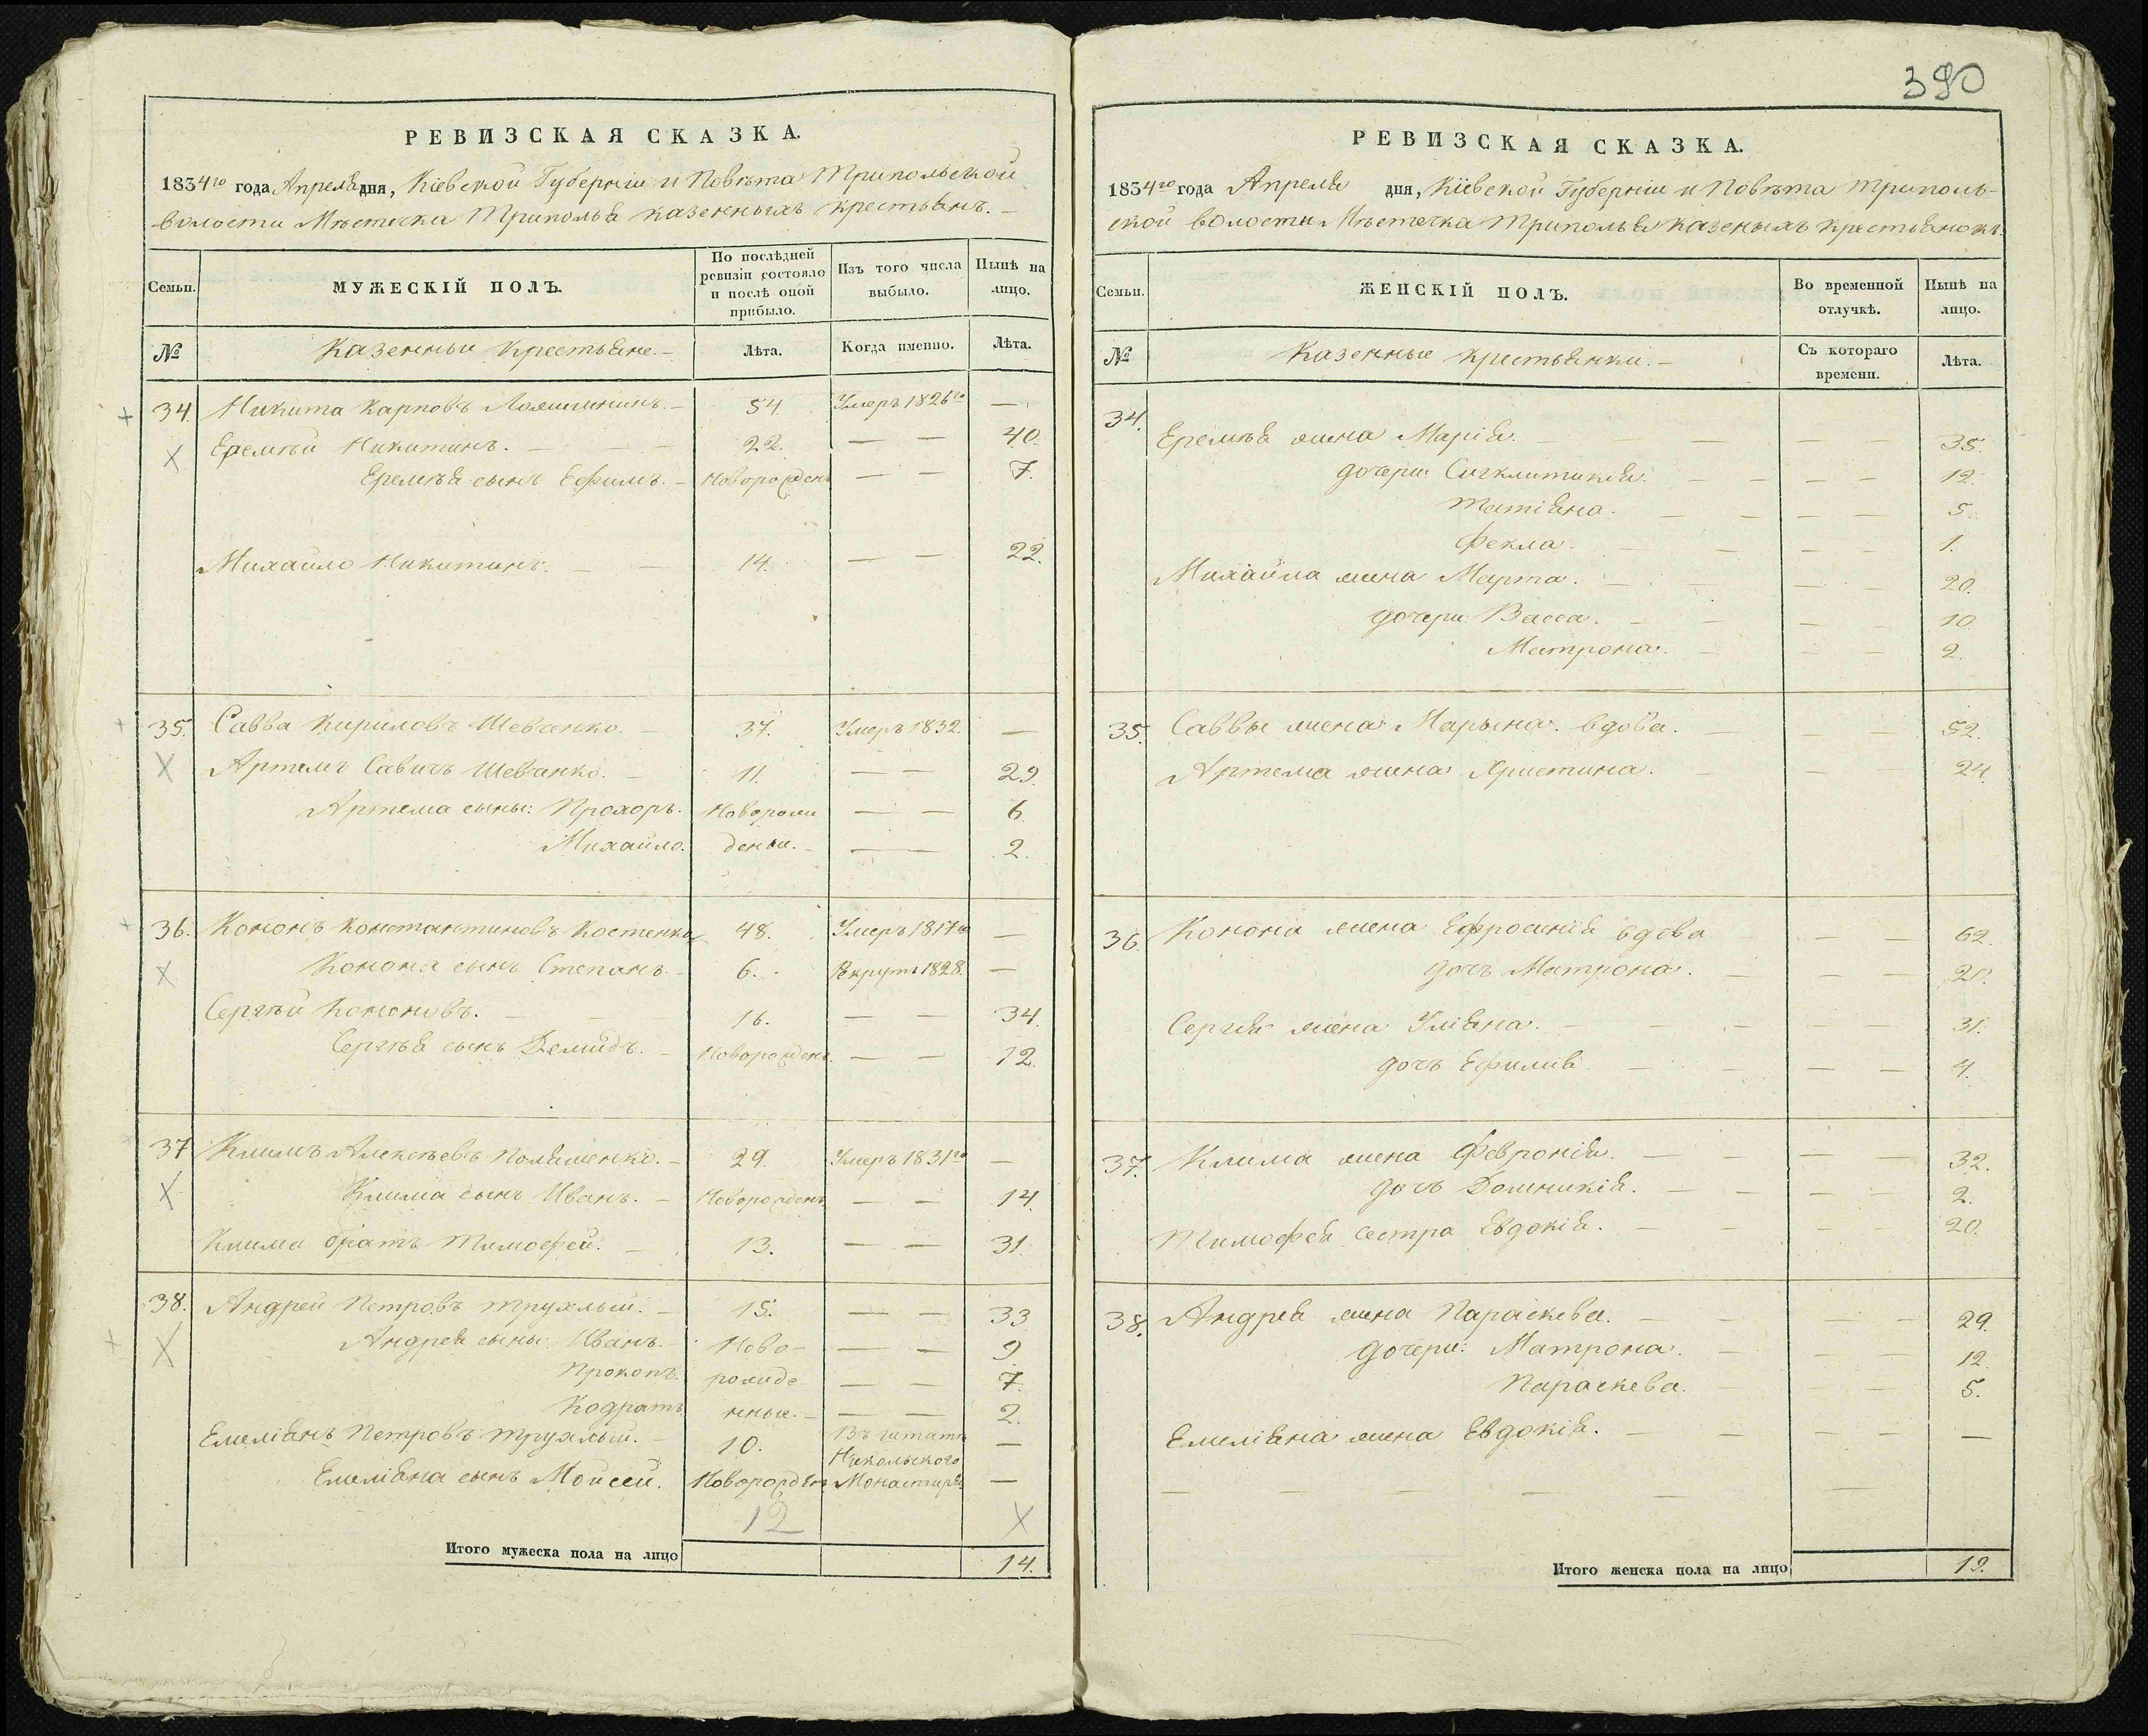 РЕВИЗСКАЯ СКАЗКА.
1834го года Апреля дня, Кіевской Губерніи и Повѣта Трипольской
волости Мѣстечка Триполья казенныхъ крестьянъ.
Семьи.
МУЖЕСКІЙ ПОЛЪ.
По послѣдней ревизіи состояло и послѣ оной прибыло.
Изъ того числа выбыло.
Нынѣ на лицо.
№
Казенныи Крестьяне.
Лѣта.
Когда именно.
Лѣта.
34. Никита Карповъ 54 Умеръ 1826го —
Еремѣй Никитинъ. 22. — — 40.
Еремѣя сынъ Ефимъ. Новорожденъ — — 7.
Михайло Никитинъ. 14. — — 22.
35. Савва Кириловъ Шевченко. 37. Умеръ 1832. —
Артемъ Савичъ Шевченко. 11. — — 29.
Артема сыны: Прохоръ. Новорож — — 6.
Михайло. дены. — — 2.
36. Кононъ Константиновъ Костенко 48. Умеръ 1817го —
Конона сынъ Степанъ. 6. Рекрутъ 1828. —
Сергѣй Кононовъ. 16. — — 34.
Сергѣя сынъ Демидъ. Новорожденъ. — — 12.
37 Климъ Алексѣевъ 29. Умеръ 1831го —
Клима сынъ Иванъ. Новорожденъ — — 14.
Клима братъ Тимофей. 13. — — 31.
38. Андрей Петровъ Трухлый. 15. — — 33
Андрея сыны: Иванъ. Ново- — — 9
Прокопъ. рожде — — 7.
Кодратъ нные. — — 2.
Емеліянъ Петровъ Трухлый. 10. Въ штатъ —
Никольского
Емеліяна сынъ Мойсей. Новорожден Монастиря —
12
Итого мужеска пола на лицо 14.
390
РЕВИЗСКАЯ СКАЗКА.
1834го года Апреля дня, Кіевской Губерніи и Повѣта Триполь-
ской волости Мѣстечка Триполья казеныхъ крестьянокъ.
Семьи.
ЖЕНСКІЙ ПОЛЪ.
Во временной отлучкѣ.
Нынѣ на лицо.
№
Казенные крестьянки.
Съ котораго времени.
Лѣта.
34.
Еремѣя жена Марія. — 35.
дочери Сигклитикія. — — 12.
Татіяна. — — 5.
Фекла. — — 1.
Михайла жена Марта. — — 20.
дочери: Васса. — — 10.
Матрона. — — 2.
35. Саввы жена Марына вдова. — — 52.
Артема жена Христина. — 24.
36. Конона жена Ефросинія вдова — — 62.
дочь Матрона. — —
Сергѣя жена Уліяна. — — 31.
дочь Ефимія — — 4.
37. Клима жена Февронія. — — 32.
дочь Домникія. — — 2.
Тимофея сестра Евдокія. — — 20.
38. Андрея жена Параскева. — — 29.
дочери: Матрона. — — 12.
Параскева. — — 5.
Емеліяна жена Евдокія. — — —
Итого женска пола на лицо 19.